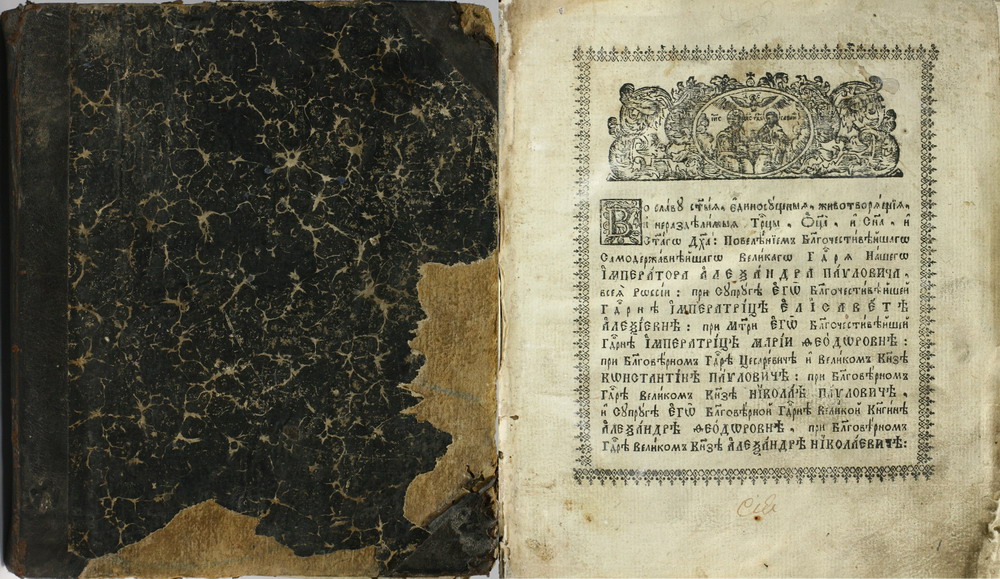 Во славу ст҃ыѧ, є҆диносꙋщныѧ, животворѧщїѧ,
и҆ нераздѣлимыѧ Трⷪ҇цы, Ѻ҆ц҃а̀, и҆ Сн҃а, и҆
Ст҃а́гѡ Дх҃а: Повелѣ́нїемъ Благочести́вѣйшагѡ
Самодержа́внѣйшагѡ Вели́кагѡ Гдⷭ҇рѧ̀ На́шегѡ
І҆МПЕРА́ТОРА А҆ЛЕѮА́НДРА ПА́ѴЛОВИЧА,
всеѧ̀ Рѡссі́и: при Сꙋпрꙋ́гѣ Є҆ГѠ̀ Благочести́вѣйшей
Гдⷭ҇рнѣ І҆МПЕРАТРІ́ЦѢ Є҆ЛІСАВЕ́ТѢ
А҆ЛЕѮІ́ЕВНѢ: при Мт҃ри Є҆ГѠ̀ Благочести́вѣйшей
Гдⷭ҇рнѣ І҆МПЕРАТРІ́ЦѢ МАРІ́И ѲЕО́ДѠРОВНѢ:
при Благовѣ́рномъ Гдⷭ҇рѣ Цесаре́вичѣ и҆ Вели́комъ Кн҃зѣ
КѠНСТАНТІ́НѢ ПА́ѴЛОВИЧѢ: при Благовѣ́рномъ
Гдⷭ҇рѣ Вели́комъ Кн҃зѣ НІКОЛА́Ѣ ПА́ѴЛОВИЧѢ,
и҆ Сꙋпрꙋ́гѣ Є҆ГѠ̀ Благовѣ́рной Гдⷭ҇рнѣ Вели́кой Кнѧги́нѣ
А҆ЛЕѮА́НДРѢ ѲЕО́ДѠРОВНѢ, при Благовѣ́рномъ
Гдⷭ҇рѣ Вели́комъ Кн҃зѣ А҆ЛЕѮА́НДРѢ НІКОЛА́ЕВИЧѢ: